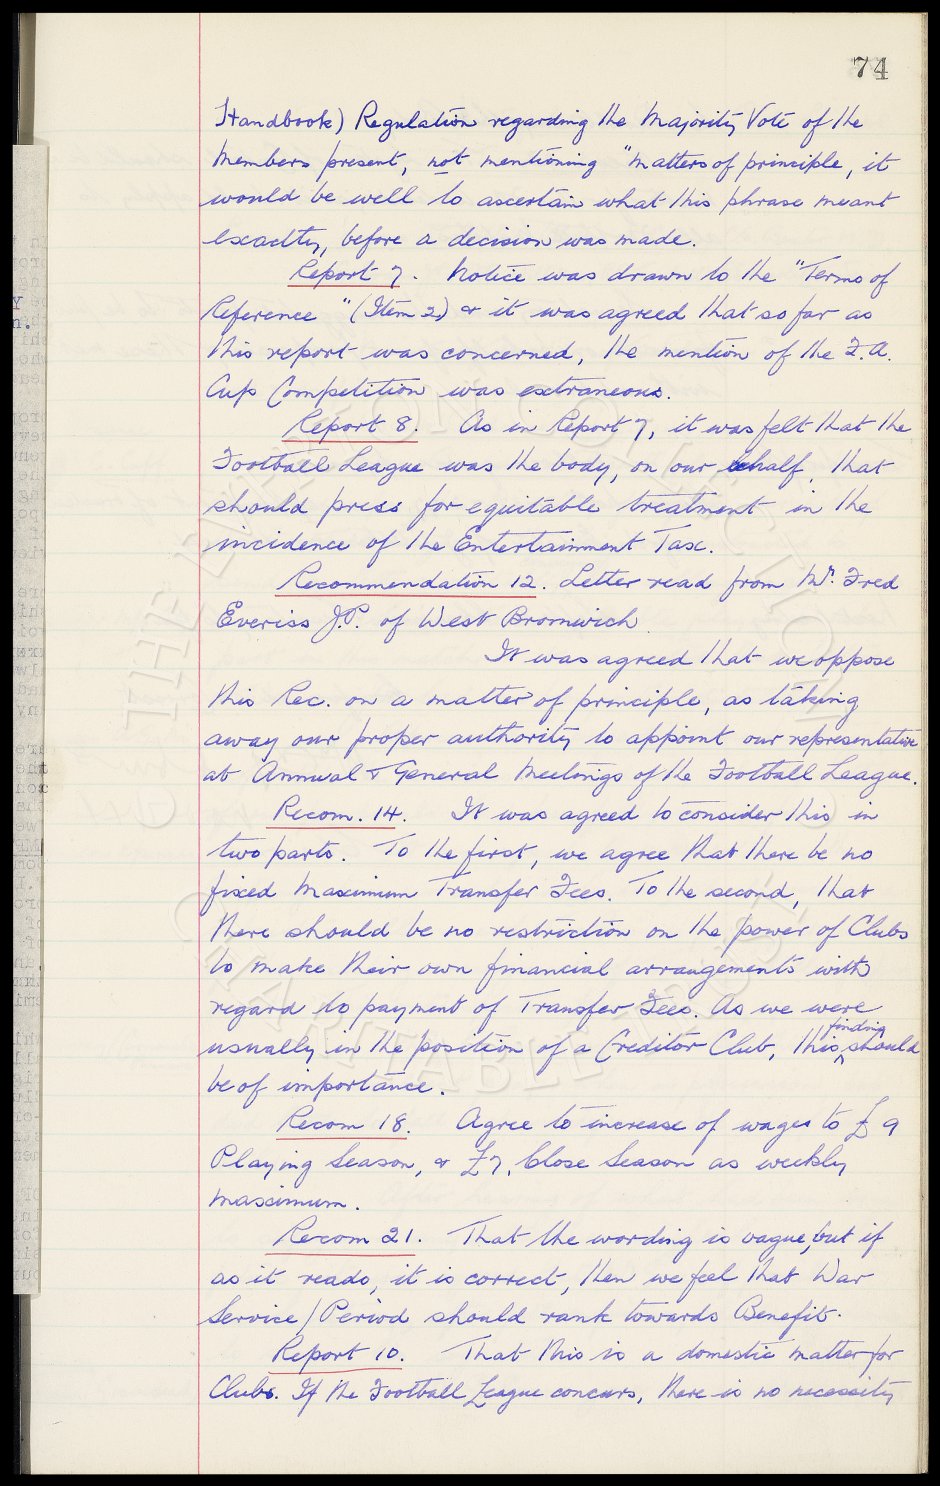 74
Handbook) Regulation regarding the Majority Vote of the
Members present, not mentioning "Matters of principle, it
would be well to ascertain what this phrase meant
exactly, before a decision was made.
Report 7. Notice was drawn to the "Terms of
Reference" (Item 2) & it was agreed that so far as
this report was concerned, the mention of the F.A.
Cup Competition was extraneous.
Report 8. As in Report 7, it was felt that the
Football League was the body, on our behalf, that
should press for equitable treatment in the
incidence of the Entertainment Tax.
Recommendation 12. Letter read from Mr. Fred
Everiss J.P. of West Bromwich
It was agreed that we oppose
this Rec. on a matter of principle, as taking
away our proper authority to appoint our representative
at Annual & General Meetings of the Football League.
Recom. 14. It was agreed to consider this in
two parts. To the first, we agree that there be no
fixed Maximum Transfer Fees. To the second, that
there should be no restriction on the power of Clubs
to make their own financial arrangements with
regard to payment of Transfer Fees. As we were
usually in the position of a Creditor Club, this finding should
be of importance.
Recom 18. Agree to increase of wages to £9
Playing Season, & £7, Close Season as weekly
maximum.
Recom 21. That the wording is vague, but if
as it reads, it is correct, then we feel that War
Service/Period should rank towards Benefit.
Report 10. That this is a domestic matter for
Clubs. If the Football League concurs, there is no necessity
THE EVERTON COLLECTION
CHARITABLE TRUST